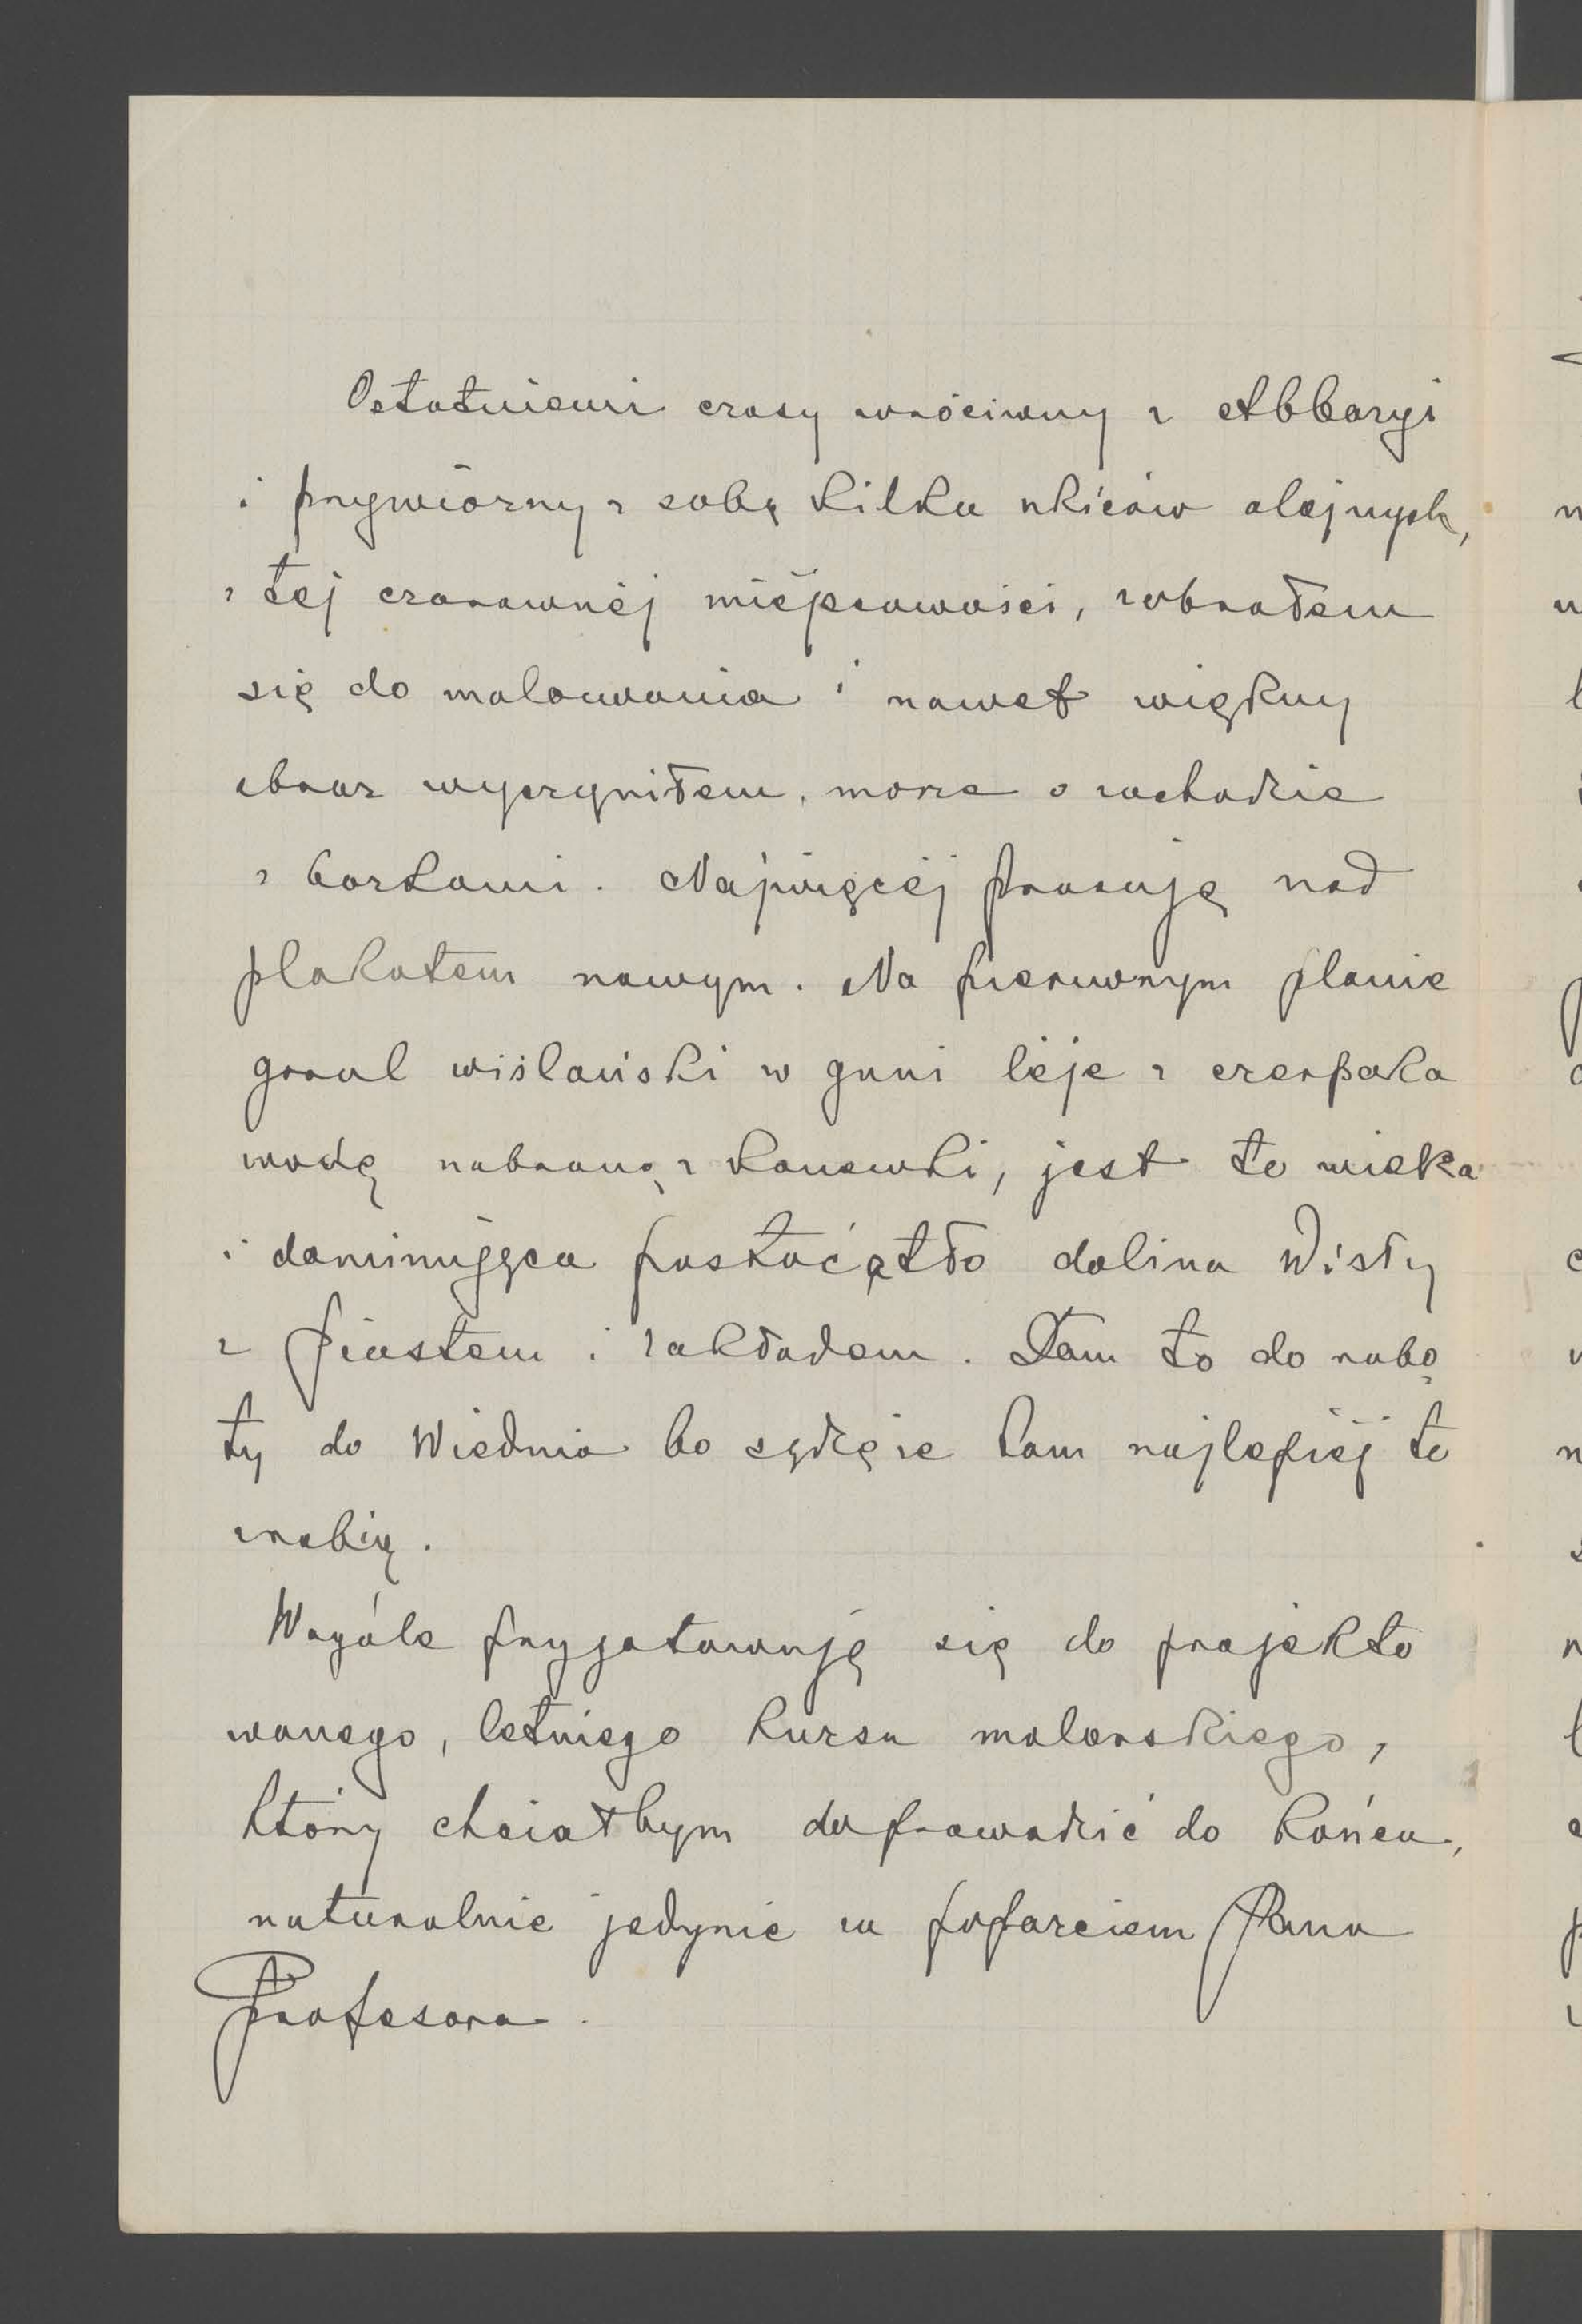 Ostatniemi czasy wróciwszy z Abbazyi
i przywiózszy z sobą kilka szkiców olejnych,
z tej czarownéj miejscowości, zabrałem
się do malowania i nawet większy
obraz wyczyniłem, morze o zachodzie
z barkami. Najwięcéj pracuję nad
plakatem nowym. Na pierwszym planie
goral wiślański w guni leje z czerpaka
wodę nabraną z konewki, jest to wielka
i dominująca postać, a tło dolina Wisły
z Piastem i zakładem. Dam to do robo
ty do Wiednia bo sądzę że tam najlepiéj to
zrobią.
Wogóle przygotowuję się do projekto
wanego, letniego kursu malarskiego,
który chciałbym doprowadzić do końca,
naturalnie jedynie za poparciem Pana
Profesora.